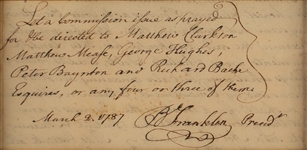 Let a Commission issue as prayed
for the directed to Matthew Clarkson
Matthew Mease, George Hughes,
Peter Baynton and Richard Bache
Esquires, or any four or three of them
March 2. 1787 B Franklin Presidt